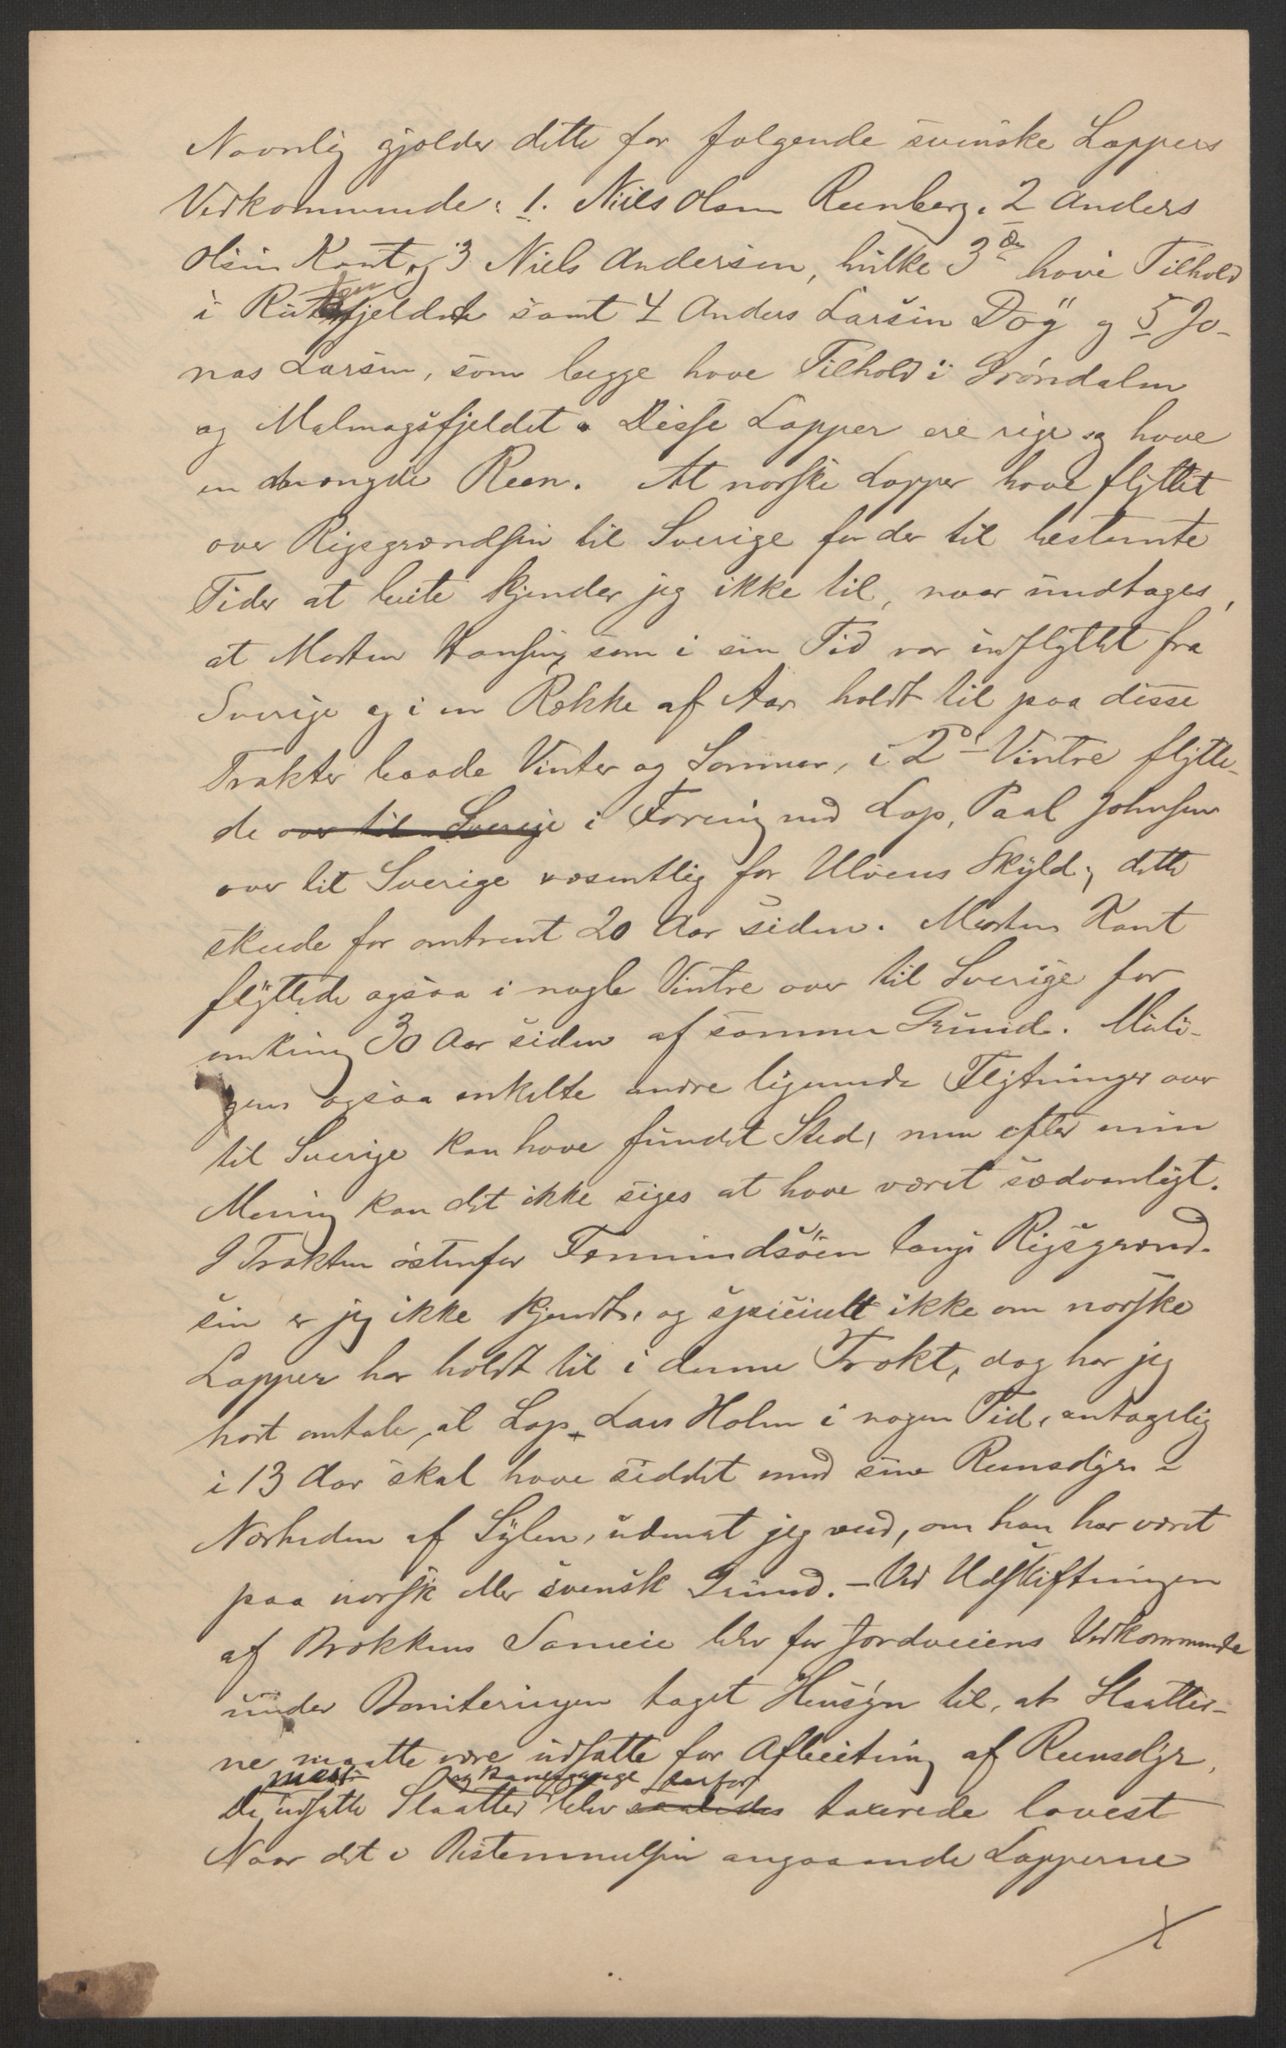 Navnlig gjælder dette for følgende svenske Lappers
Vedkommende: 1. Niels Olsen Reenberg. 2 Anders
Olsen Kant og 3 Niels Andersen, hvilke 3de have Tilhold
i Rutenfjeldet samt 4 Anders Larsen Döj og 5 Jo-
nas Larsen, som begge have Tilhold i Grøndalen
og Malmagsfjeldet. Disse Lapper ere rige og have
en mængde Reen. At norske Lapper have flyttet
over Rigsgrændsen til Sverige for der til bestemte
Tider at beite kjender jeg ikke til, naar undtages,
at Morten Hansen, som i sin Tid var indflyttet fra
Sverige og i en Række af Aar holdt til paa disse
Trakter baade Vinter og Sommer, i 2de Vintre flytte-
de over til Sverige i Forening med Lap. Paal Johnsen
over til Sverige væsentlig for Ulvens Skyld; dette
skede for omtrent 20 Aar siden. Morten Kant
flyttede ogsaa i nogle Vintre over til Sverige for
omkring 30 Aar siden af samme Grund. Muli-
gens ogsaa enkelte andre lignende Flytninger over
til Sverige kan have fundet Sted, men efter min
Mening kan det ikke siges at have været sædvanligt.
I Trakten østenfor Fæmundsøen langs Rigsgrænd-
sen er jeg ikke kjendt, og specielt ikke om norske
Lapper har holdt til i denne Trakt, dog har jeg
hørt omtale, at Lap. Lars Holm i nogen Tid, antagelig
i 13 Aar skal have siddet med sine Reensdyr i
Nærheden af Sylen, uden at jeg veed, om han har været
paa norsk eller svensk Grund. – Ved Udskiftningen
af Brækkens Sameie blev for Jordveiens Vedkommende
under Boniteringen taget Hensyn til, at Slaatter-
ne maatte være udsatte for Afbeiting af Reensdyr,
mest og havnegange derfor
De udsatte Slaatter blev saaledes taxerede lavest
Naar det i Bestemmelsen angaaende Lapperne